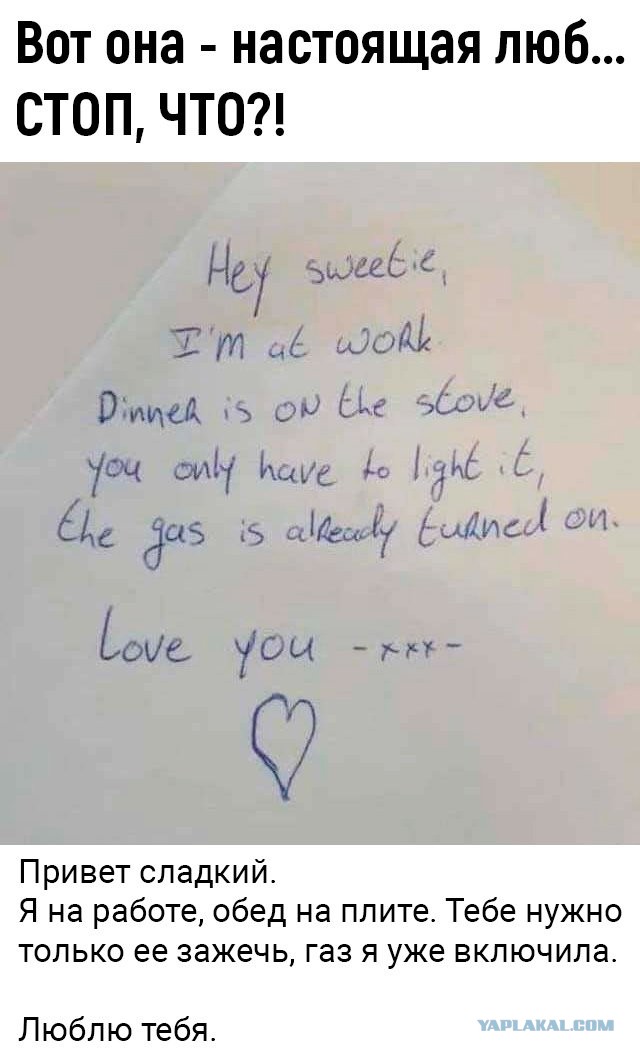 Вот она - настоящая люб...
СТОП, ЧТО?!
Hey sweetie,
I'm at work.
Dinner is on the stove,
you only have to light it,
the gas is already turned on.
Love you -xxx-
Привет сладкий.
Я на работе, обед на плите. Тебе нужно
только ее зажечь, газ я уже включила.
Люблю тебя.
YAPLAKAL.COM